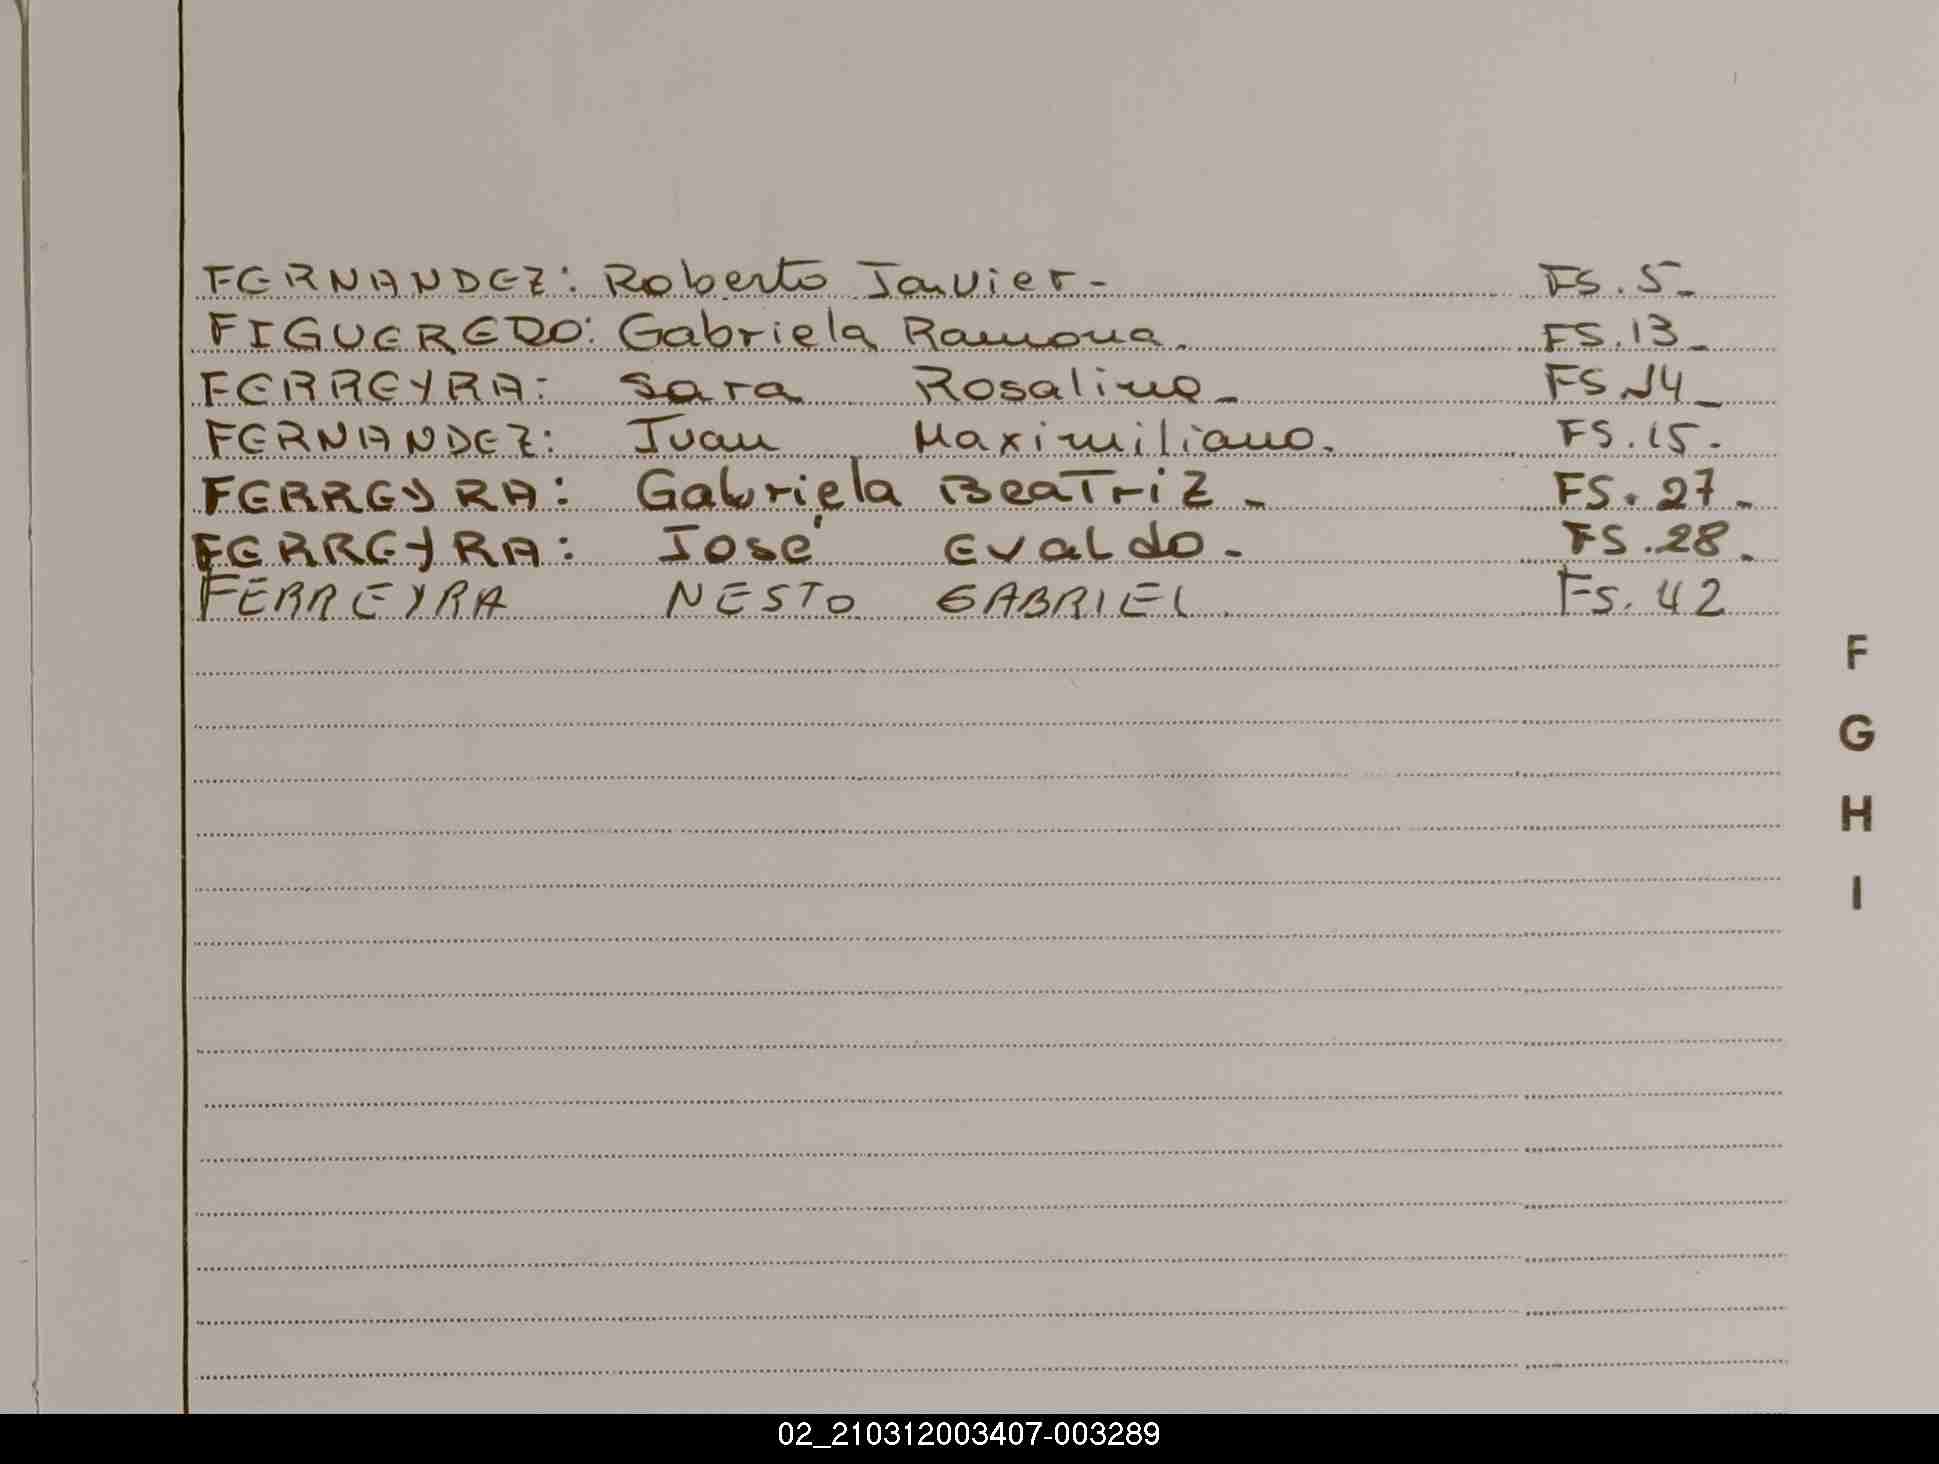 FERNANDEZ: Roberto Javier- FS. 5_
FIGUEREDO: Gabriela Ramona. FS. 13_
FERREYRA: Sara Rosalino_ FS 14_
FERNANDEZ: Juan Maximiliano. FS. 15.
FERREYRA: Gabriela BeaTriz_ FS. 27_
FERREYRA: José Evaldo- FS. 28.
FERREYRA NESTO GABRIEL. Fs. 42
F
G
H
I
02_210312003407-003289